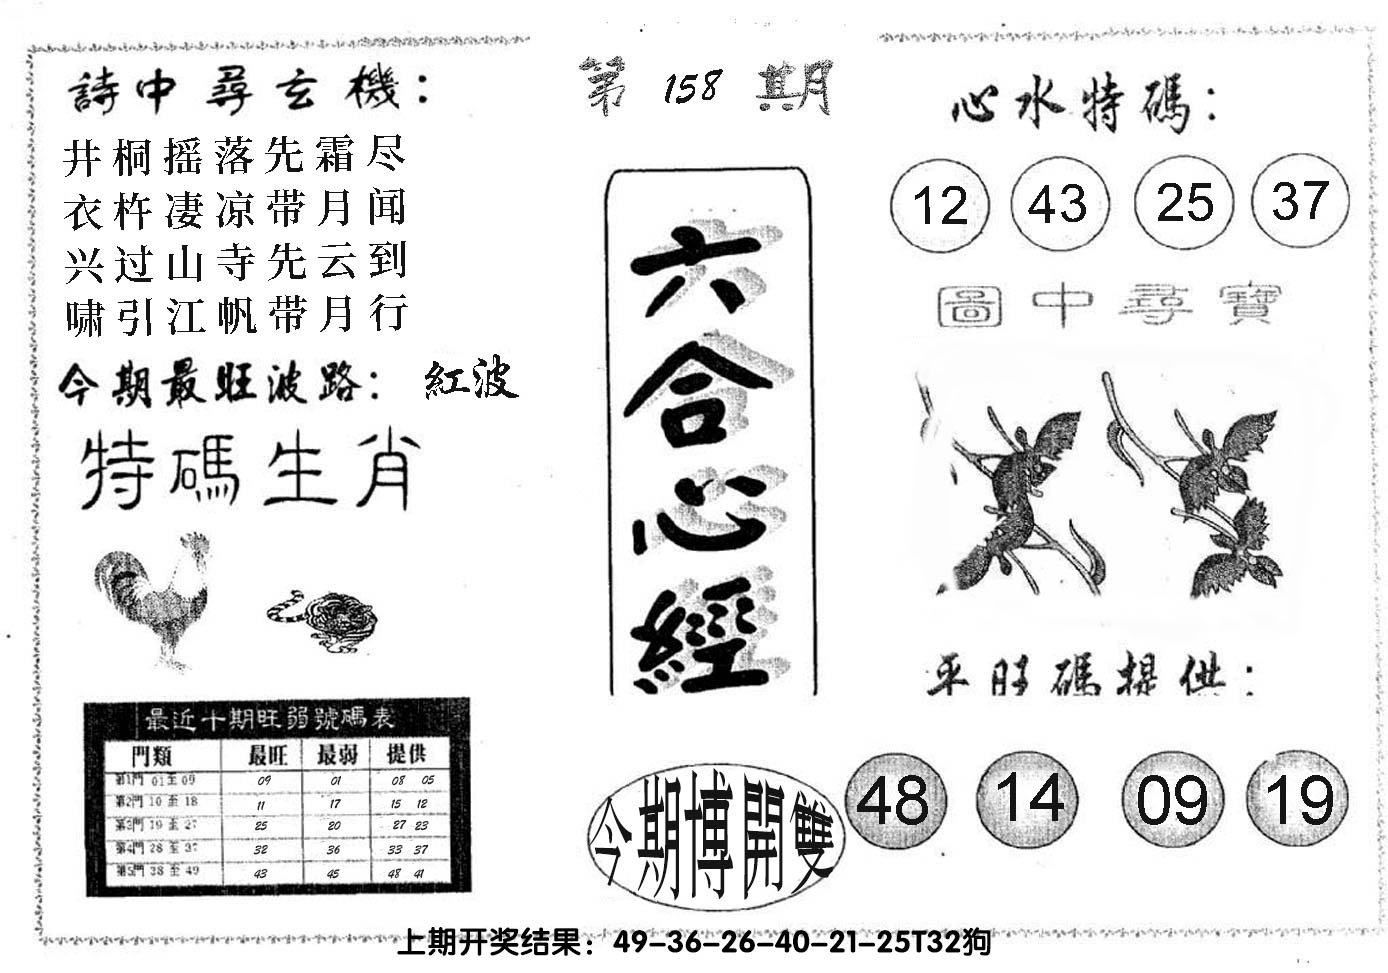 第158期
詩中尋玄機：
井桐摇落先霜尽
衣杵凄凉带月闻
兴过山寺先云到
啸引江帆带月行
今期最旺波路：紅波
特碼生肖
最近十期旺弱號碼表
門類 最旺 最弱 提供
第1門 01至09 09 01 08 05
第2門 10至18 11 17 15 12
第3門 19至27 25 20 27 23
第4門 28至37 32 36 33 37
第5門 38至49 43 45 48 41
六合心經
今期博開雙
心水特碼：
12 43 25 37
圖中尋寶
平旺碼提供：
48 14 09 19
上期开奖结果：49-36-26-40-21-25T32狗